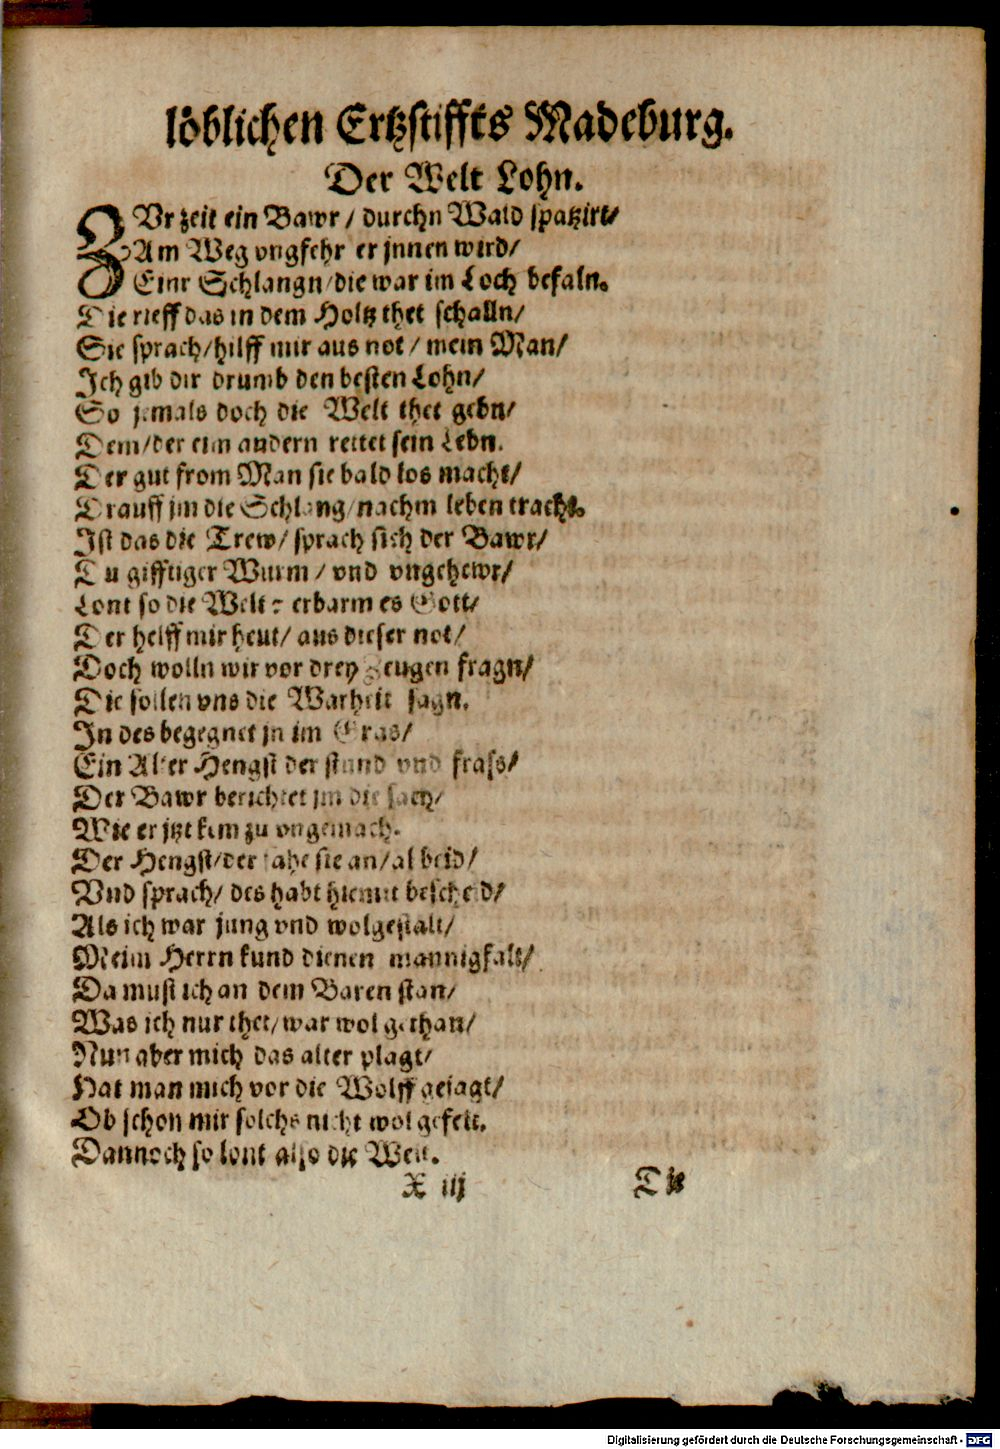 löblichen Ertzstiffts Madeburg.
Der Welt Lohn.
ZVr zeit ein Bawr / durchn Wald spatzirt/
Am Weg vngfehr er jnnen wird/
Einr Schlangn/die war im Loch befaln.
Die rieff das in dem Holtz thet schalln/
Sie sprach/hilff mir aus not / mein Man/
Ich gib dir drumb den besten Lohn/
So jemals doch die Welt thet gebn/
Dem/der eim andern rettet sein Lebn.
Der gut from Man sie bald los macht/
Drauff jm die Schlang/nachm leben tracht.
Ist das die Trew/ sprach sich der Bawr/
Du gifftiger Wurm / vnd vngehewr/
Lont so die Welt? erbarm es Gott/
Der helff mir heut/ aus dieser not/
Doch wolln wir vor drey Zeugen fragn/
Die sollen vns die Warheit sagn.
In des begegnet jn im Gras/
Ein Alter Hengst der stund vnd frass/
Der Bawr berichtet jm die sach/
Wie er jtzt kem zu vngemach.
Der Hengst/der sahe sie an/al beid/
Vnd sprach/ des habt hiemit bescheid/
Als ich war jung vnd wolgestalt/
Meim Herrn kund dienen mannigfalt/
Da must ich an dem Baren stan/
Was ich nur thet/war wol gethan/
Nun aber mich das alter plagt/
Hat man mich vor die Wolff gejagt/
Ob schon mir solchs nicht wol gefelt.
Dannoch so lont also die Welt.
X iij Die
Digitalisierung gefördert durch die Deutsche Forschungsgemeinschaft - DFG